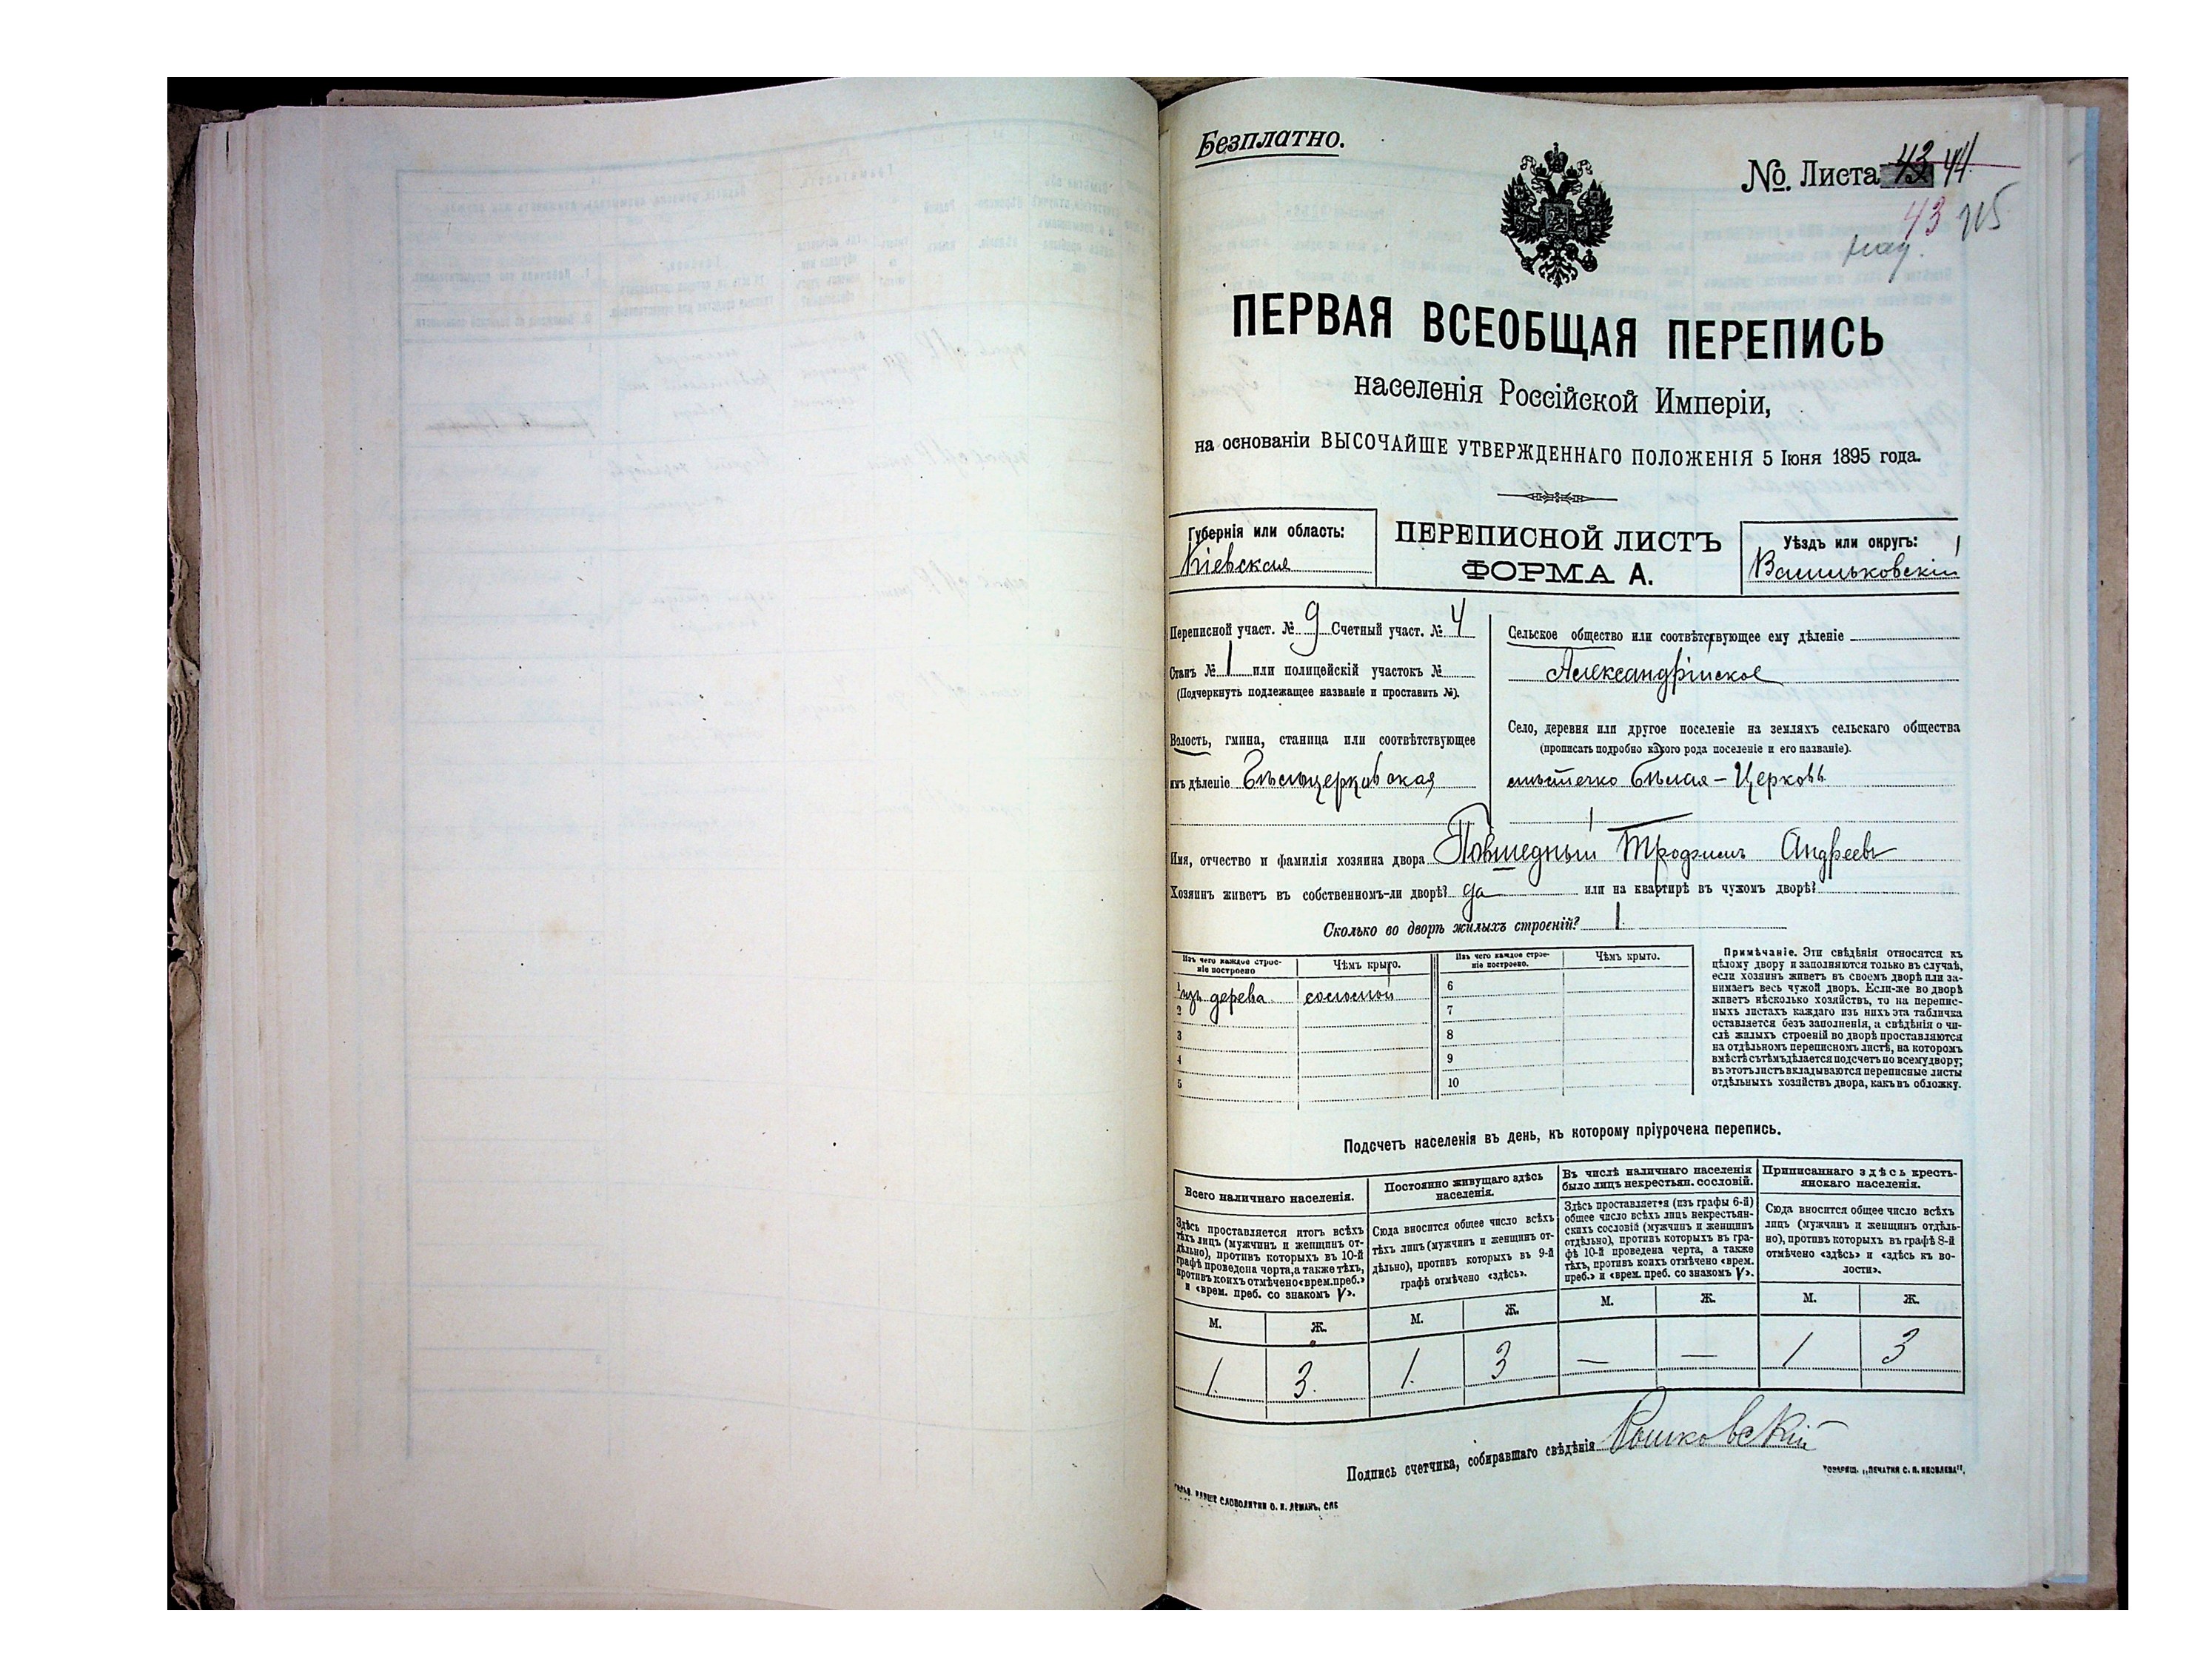 Безплатно.
№ Листа 43 44
43 715
ПЕРВАЯ ВСЕОБЩАЯ ПЕРЕПИСЬ
населенія Россійской Имперіи,
на основаніи ВЫСОЧАЙШЕ УТВЕРЖДЕННАГО ПОЛОЖЕНІЯ 5 Іюня 1895 года.
Губернія или область:
Кіевская
ПЕРЕПИСНОЙ ЛИСТЪ
ФОРМА А.
Уѣздъ или округъ:
Васильковскій
Переписной участ. № 9 Счетный участ. № 4
Станъ № 1 или полицейскій участокъ №
(Подчеркнуть подлежащее названіе и проставить №).
Волость, гмина, станица или соотвѣтствующее
имъ дѣленіе Бѣлоцерковская
Сельское общество или соотвѣтствующее ему дѣленіе
Александрійское
Село, деревня или другое поселеніе на земляхъ сельскаго общества
(прописать подробно какого рода поселеніе и его названіе).
мѣстечко Бѣлая-Церковь
Имя, отчество и фамилія хозяина двора Повшедный Трофимъ Андреевъ
Хозяинъ живетъ въ собственномъ-ли дворѣ? да или на квартирѣ въ чужомъ дворѣ?
Сколько во дворѣ жилыхъ строеній? 1
Изъ чего каждое строеніе построено
Чѣмъ крыто.
Изъ чего каждое строеніе построено.
Чѣмъ крыто.
1 изъ дерева соломой
2
3
4
5
6
7
8
9
10
Примѣчаніе. Эти свѣдѣнія относятся къ
цѣлому двору и заполняются только въ случаѣ,
если хозяинъ живетъ въ своемъ дворѣ или за-
нимаетъ весь чужой дворъ. Если-же во дворѣ
живетъ нѣсколько хозяйствъ, то на перепис-
ныхъ листахъ каждаго изъ нихъ эта табличка
оставляется безъ заполненія, а свѣдѣнія о чи-
слѣ жилыхъ строеній во дворѣ проставляются
на отдѣльномъ переписномъ листѣ, на которомъ
вмѣстѣ съ тѣмъ дѣлается подсчетъ по всему двору;
въ этотъ листъ вкладываются переписные листы
отдѣльныхъ хозяйствъ двора, какъ въ обложку.
Подсчетъ населенія въ день, къ которому пріурочена перепись.
Всего наличнаго населенія.
Здѣсь проставляется итогъ всѣхъ
тѣхъ лицъ (мужчинъ и женщинъ от-
дѣльно), противъ которыхъ въ 10-й
графѣ проведена черта, а также тѣхъ,
противъ коихъ отмѣчено «врем. преб.»
и «врем. преб. со знакомъ V».
Постоянно живущаго здѣсь
населенія.
Сюда вносится общее число всѣхъ
тѣхъ лицъ (мужчинъ и женщинъ от-
дѣльно), противъ которыхъ въ 9-й
графѣ отмѣчено «здѣсь».
Въ числѣ наличнаго населенія
было лицъ некрестьян. сословій.
Здѣсь проставляется (изъ графы 6-й)
общее число всѣхъ лицъ некрестьян-
скихъ сословій (мужчинъ и женщинъ
отдѣльно), противъ которыхъ въ гра-
фѣ 10-й проведена черта, а также
тѣхъ, противъ коихъ отмѣчено «врем.
преб.» и «врем. преб. со знакомъ V».
Приписаннаго здѣсь кресть-
янскаго населенія.
Сюда вносится общее число всѣхъ
лицъ (мужчинъ и женщинъ отдѣль-
но), противъ которыхъ въ графѣ 8-й
отмѣчено «здѣсь» и «здѣсь къ во-
лости».
М. Ж. М. Ж. М. Ж. М. Ж.
1. 3. 1. 3 — — 1 3
Подпись счетчика, собиравшаго свѣдѣнія
СЛОВОЛИТНИ О. И. ЛЕМАНЪ, СПБ
ТОВАРИЩ. „ПЕЧАТНЯ С. П. ЯКОВЛЕВА“.